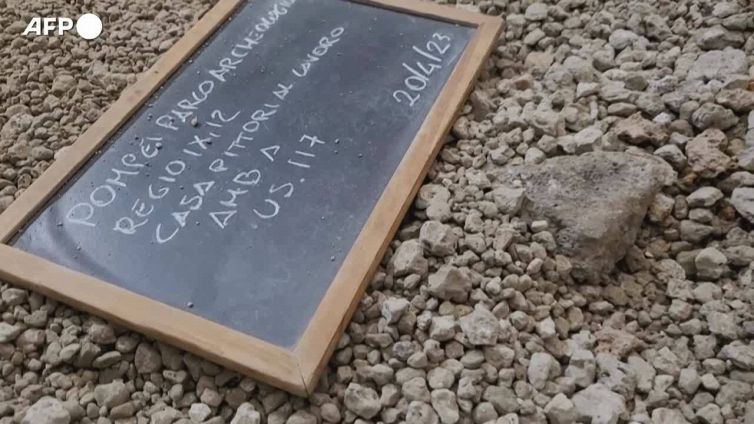 AFP
POMPEI PARCO ARCHEOLOGICO
REGIO IX.12
CASA PITTORI AL LAVORO
AMB A
US. 117
20/4/23